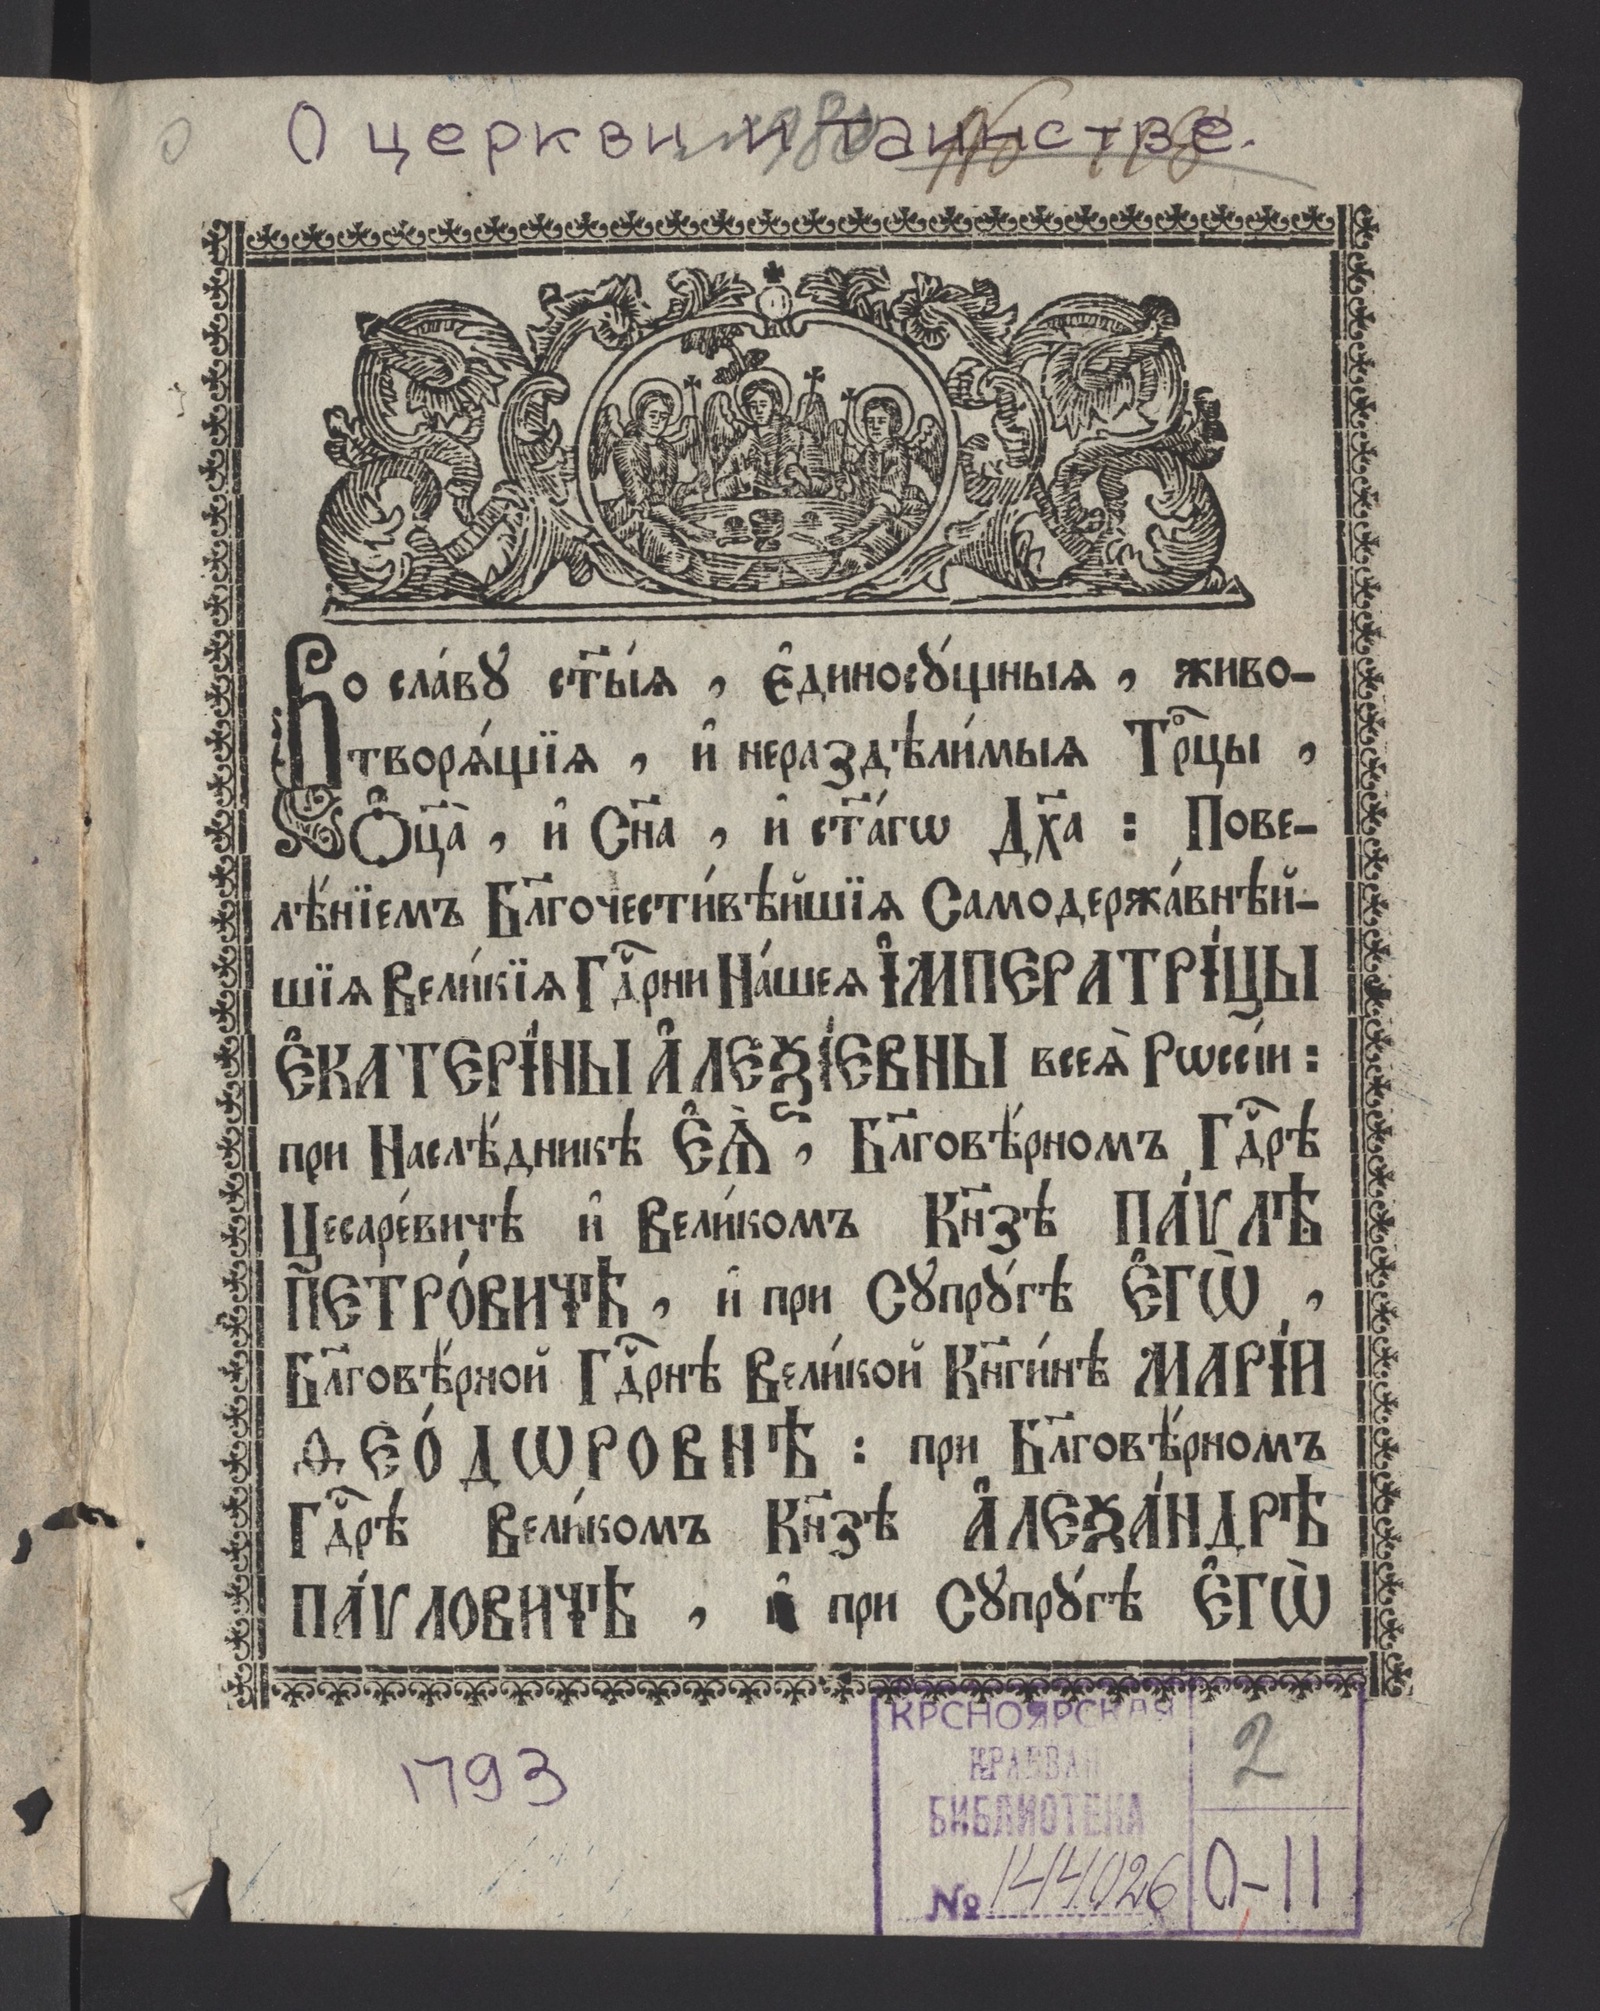 О церкви и таинстве.
Во сла́вꙋ ст҃ы́ѧ, є҆диносꙋ́щныѧ, живо-
творѧ́щїѧ, и҆ нераздѣли́мыѧ Трⷪ҇цы,
Ѻ҆ц҃а̀, и҆ Сн҃а, и҆ ст҃а́гѡ Дх҃а: Пове-
лѣ́нїемъ Бл҃гочести́вѣйшїѧ Самодержа́внѣй-
шїѧ Вели́кїѧ Гдⷭ҇рни На́шеѧ І҆МПЕРАТРІ́ЦЫ
Є҆КАТЕРІ́НЫ А҆ЛЕѮІ́ЕВНЫ всеѧ̀ Рѡссі́и:
при Наслѣ́дникѣ Є҆Ѧ̀, Бл҃говѣ́рномъ Гдⷭ҇рѣ
Цесаре́вичѣ и҆ Вели́комъ Кн҃зѣ ПА́ѴЛѢ
ПЕТРО́ВИЧѢ, и҆ при Сꙋпрꙋ́гѣ Є҆ГѠ̀,
Бл҃говѣ́рной Гдⷭ҇рнѣ Вели́кой Кн҃ги́нѣ МАРІ́И
ѲЕО́ДѠРОВНѢ: при Бл҃говѣ́рномъ
Гдⷭ҇рѣ Вели́комъ Кн҃зѣ А҆ЛЕѮА́НДРѢ
ПА́ѴЛОВИЧѢ, и҆ при Сꙋпрꙋ́гѣ Є҆ГѠ̀
1793
КРСНОЯРСКАЯ
КРАЕВАЯ
БИБЛИОТЕКА
№ 144026
2
О-11